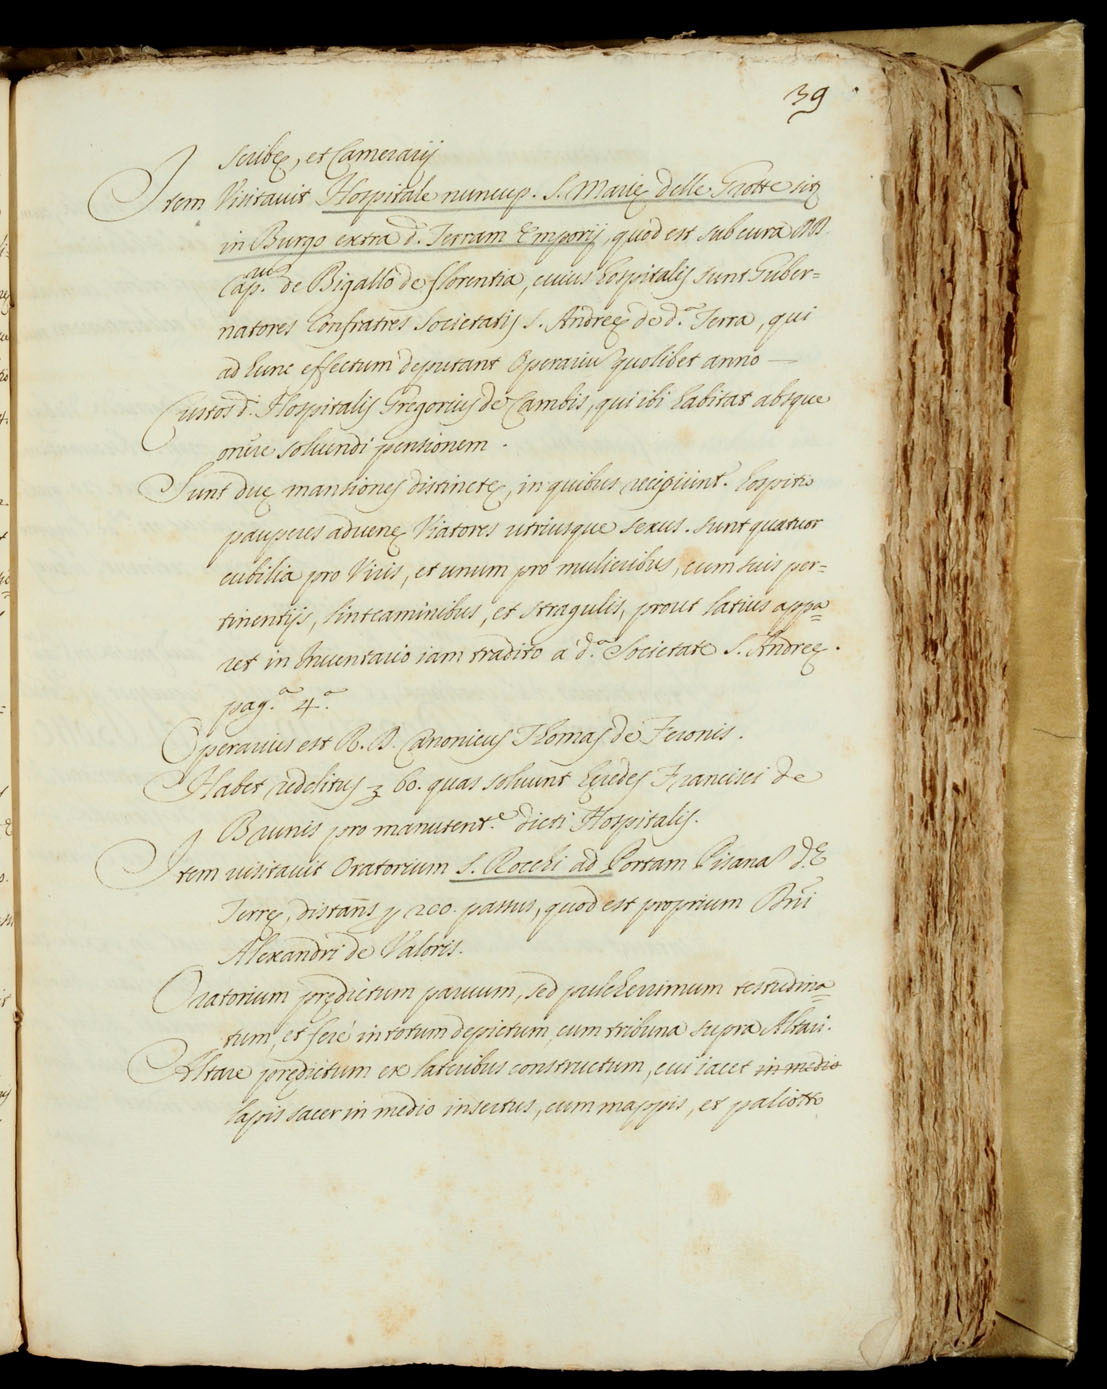 39
scribę, et Camerarij
Item Visitauit Hospitale nuncup. S. Marię delle Grotte sitū
in Burgo extra d. Terram Emporij, quod est sub cura DD.
Cap. de Bigallo de Florentia, cuius hospitalis sunt Guber=
natores Confratres Societatis S. Andreę de d.ª Terra, qui
ad hunc effectum deputant Operariū quolibet anno —
Custos d. Hospitalis Gregorius de Cambis, qui ibi habitat absque
onere soluendi pensionem.
Sunt duę mansiones distinctę, in quibus recipiunt.r hospitio
pauperes aduenę Viatores utriusque sexus. sunt quatuor
cubilia pro Viris, et unum pro mulieribus, cum suis per=
tinentijs, linteaminibus, et stragulis, prout latius appa=
ret in Inuentario iam tradito a d.ª Societate S. Andreę.
pag.ª 4.ª
Operarius est R. D. Canonicus Thomas de Feronis.
Habet redditus 60. quas soluunt heredes Francisci de
Brunis pro manutent.e dicti Hospitalis.
Item uisitauit Oratorium S. Rocchi ad Portam Pisanā d.ę
Terrę, distans p 200. passus, quod est proprium Dni
Alexandri de Valoris.
Oratorium prędictum paruum, sed pulcherrimum testudina=
tum, et ferè in totum depictum, cum tribuna supra Altari.
Altare prędictum ex lateribus constructum, cui iacet in medio
lapis sacer in medio insertus, cum mappis, et paliotto